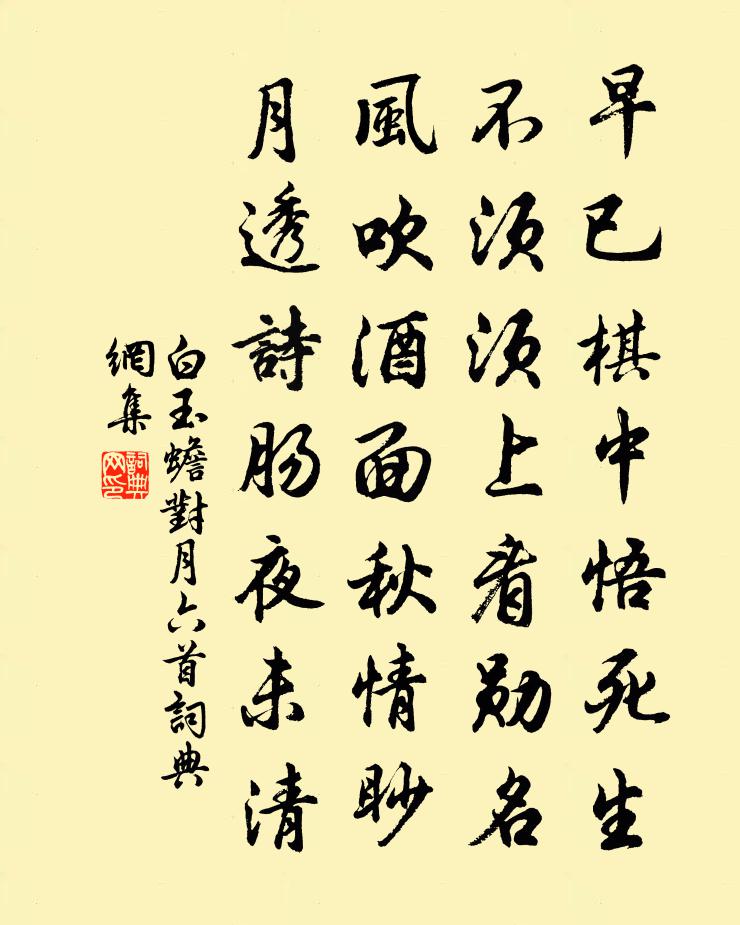 早已棋中悟死生
不須須上看勛名
風吹酒面秋情眇
月透詩腸夜未清
白玉蟾對月六首詞典
網集
詞典
网印